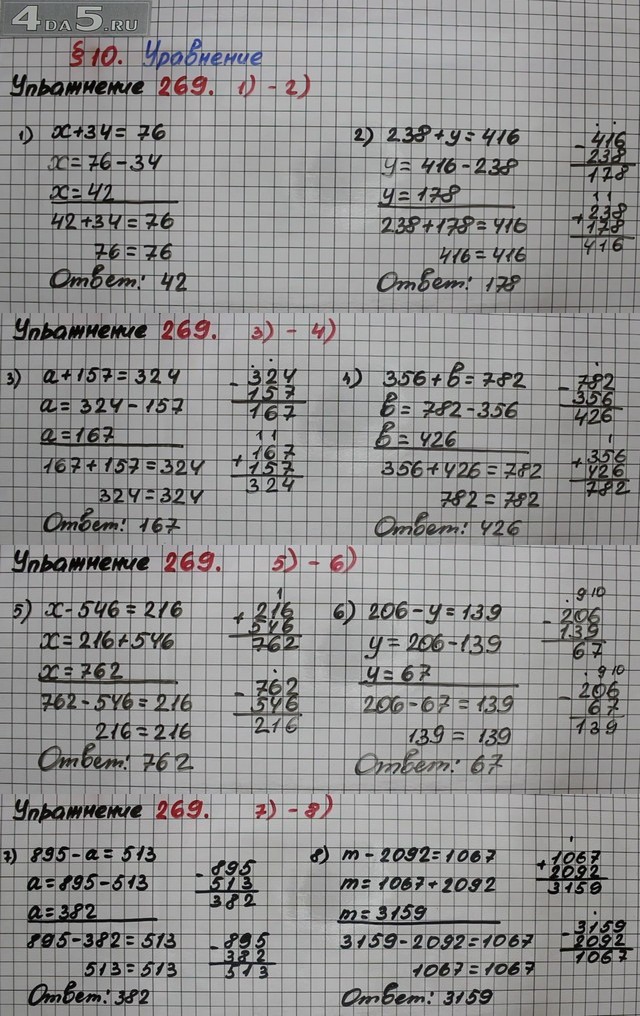 4DA5.RU
§10. Уравнение
Упражнение 269. 1) - 2)
1) x+34=76
x=76-34
x=42
42+34=76
76=76
Ответ: 42
2) 238+y=416
y=416-238
y=178
238+178=416
416=416
Ответ: 178
-416
238
178
11
+238
178
416
Упражнение 269. 3) - 4)
3) a+157=324
a=324-157
a=167
167+157=324
324=324
Ответ: 167
-324
157
167
11
+167
157
324
4) 356+в=782
в=782-356
в=426
356+426=782
782=782
Ответ: 426
-782
356
426
1
+356
426
782
Упражнение 269. 5) - 6)
5) x-546=216
x=216+546
x=762
762-546=216
216=216
Ответ: 762
1
+216
546
762
-762
546
216
6) 206-y=139
y=206-139
y=67
206-67=139
139=139
Ответ: 67
.910
-206
139
67
.910
-206
67
139
Упражнение 269. 7) - 8)
7) 895-a=513
a=895-513
a=382
895-382=513
513=513
Ответ: 382
-895
513
382
-895
382
513
8) m-2092=1067
m=1067+2092
m=3159
3159-2092=1067
1067=1067
Ответ: 3159
+1067
2092
3159
-3159
2092
1067